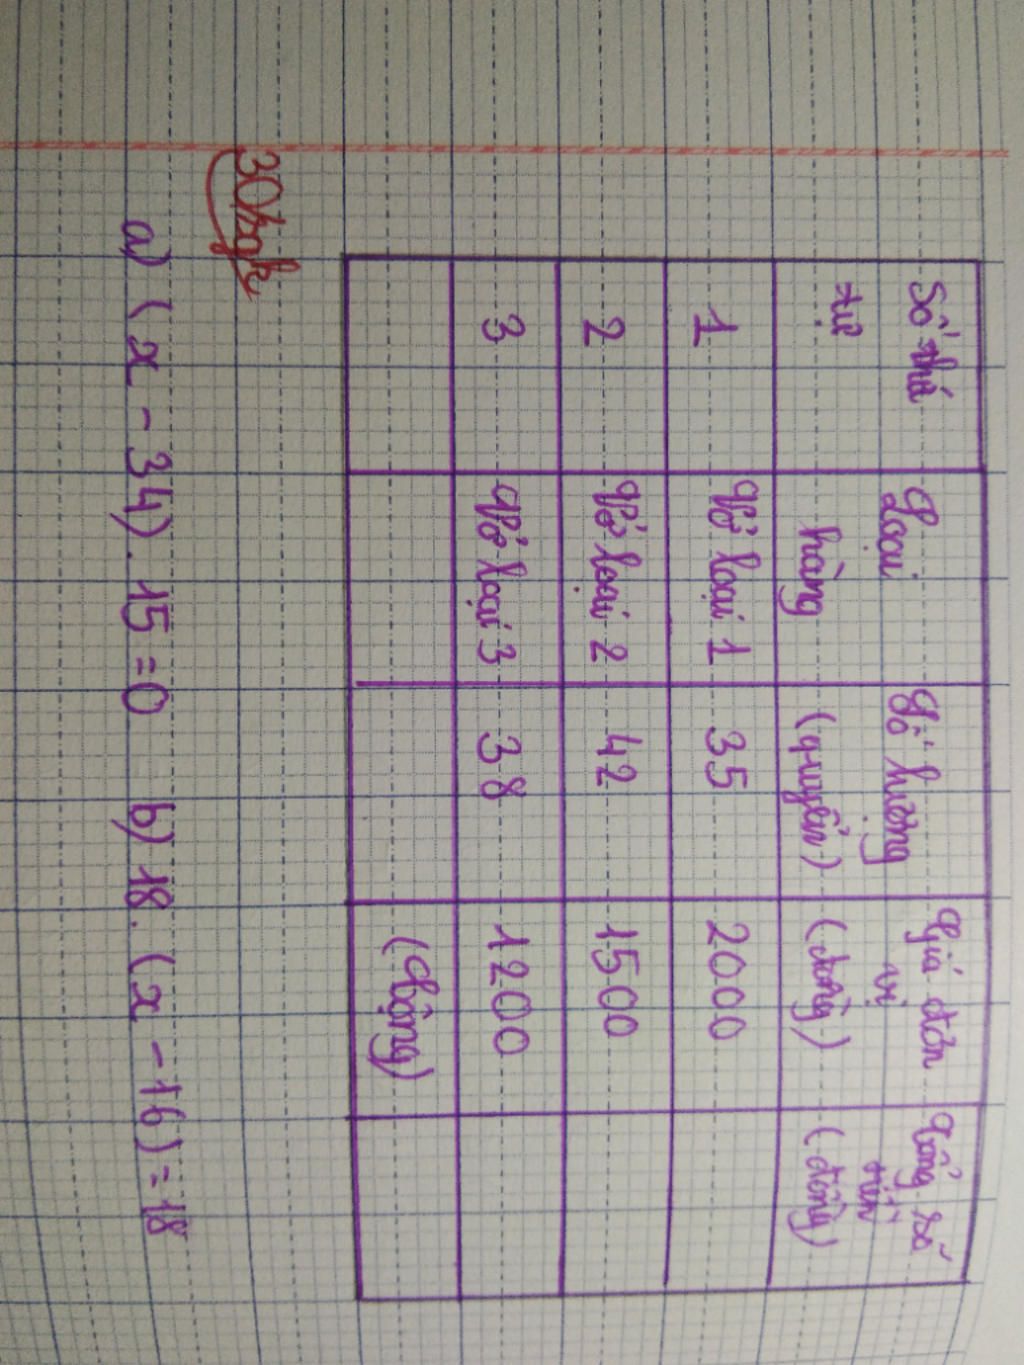 Số thứ tự | Loại hàng | Số lượng (quyển) | Giá đơn vị (đồng) | Tổng số tiền (đồng)
1 | Vở loại 1 | 35 | 2000
2 | Vở loại 2 | 42 | 1500
3 | Vở loại 3 | 38 | 1200
(Cộng)
30/sgk
a) (x - 34) . 15 = 0 b) 18. (x - 16) = 18